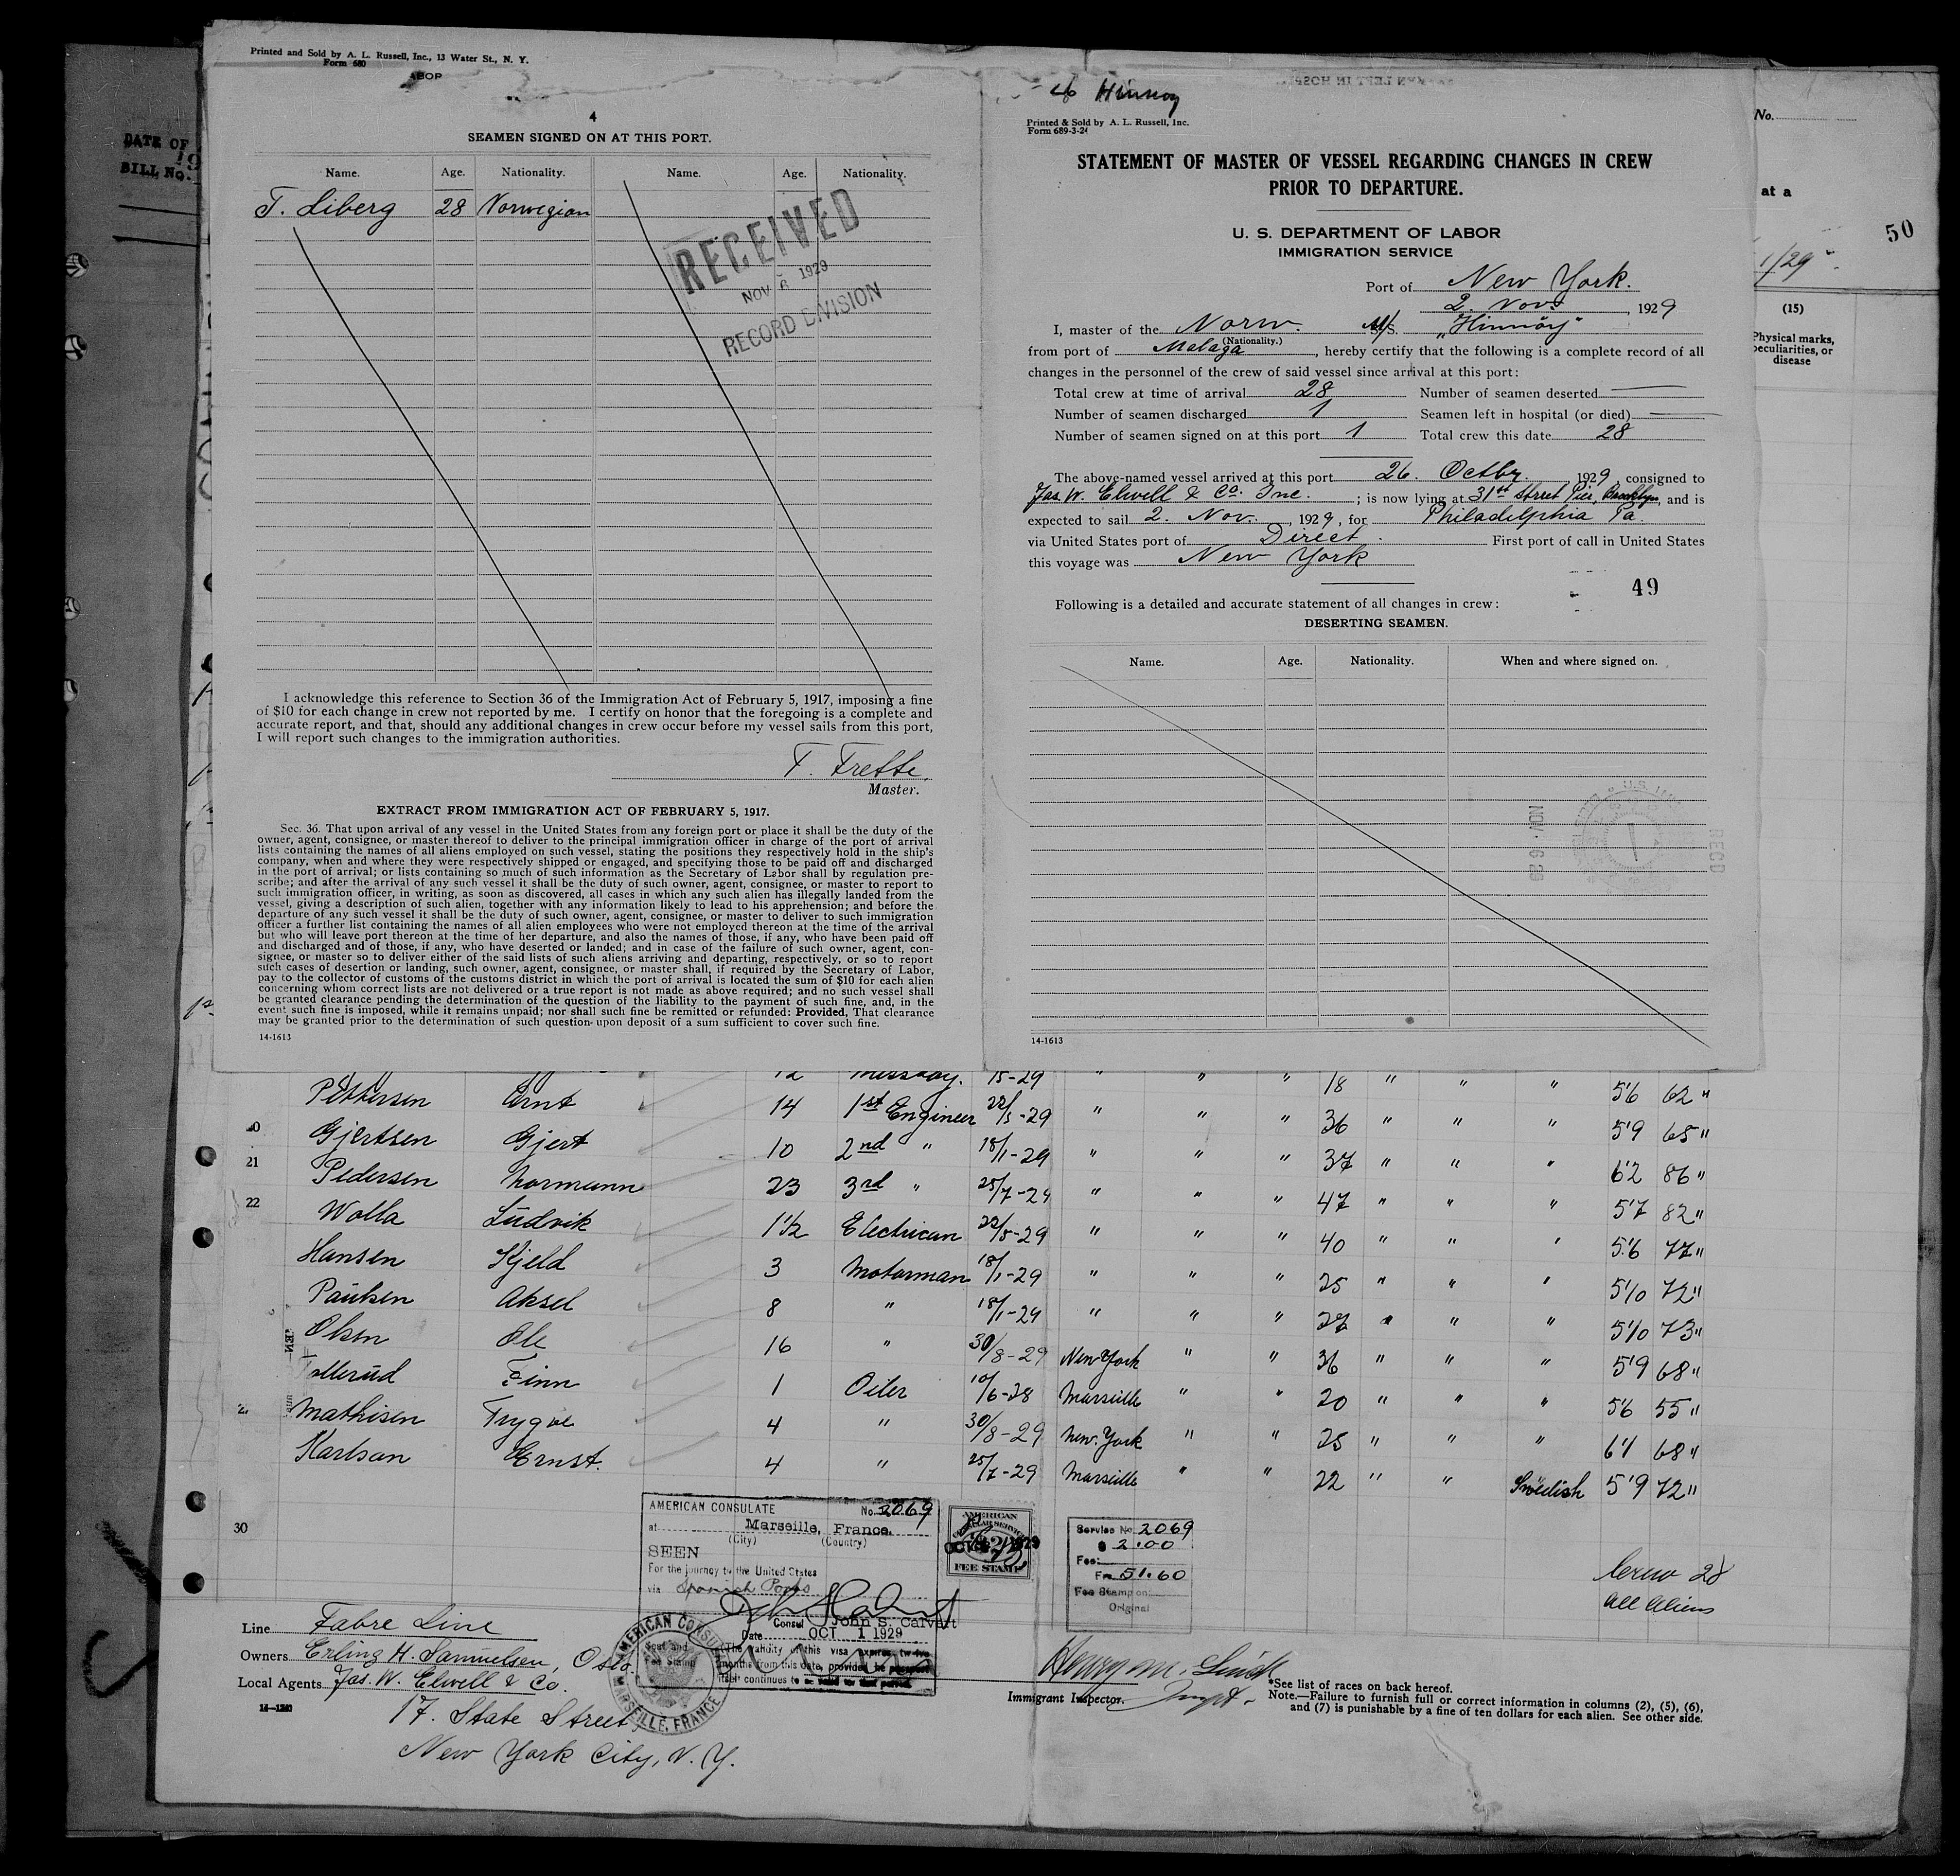 Printed and Sold by A. L. Russell, Inc., 13 Water St., N. Y.
Form 680
4
SEAMEN SIGNED ON AT THIS PORT.
Name. Age. Nationality. Name. Age. Nationality.
T. Liberg 28 Norwegian
RECEIVED
NOV 6 1929
RECORD DIVISION
I acknowledge this reference to Section 36 of the Immigration Act of February 5, 1917, imposing a fine
of $10 for each change in crew not reported by me. I certify on honor that the foregoing is a complete and
accurate report, and that, should any additional changes in crew occur before my vessel sails from this port,
I will report such changes to the immigration authorities.
T. Frette.
Master.
EXTRACT FROM IMMIGRATION ACT OF FEBRUARY 5, 1917.
Sec. 36. That upon arrival of any vessel in the United States from any foreign port or place it shall be the duty of the
owner, agent, consignee, or master thereof to deliver to the principal immigration officer in charge of the port of arrival
lists containing the names of all aliens employed on such vessel, stating the positions they respectively hold in the ship's
company, when and where they were respectively shipped or engaged, and specifying those to be paid off and discharged
in the port of arrival; or lists containing so much of such information as the Secretary of Labor shall by regulation pre-
scribe; and after the arrival of any such vessel it shall be the duty of such owner, agent, consignee, or master to report to
such immigration officer, in writing, as soon as discovered, all cases in which any such alien has illegally landed from the
vessel, giving a description of such alien, together with any information likely to lead to his apprehension; and before the
departure of any such vessel it shall be the duty of such owner, agent, consignee, or master to deliver to such immigration
officer a further list containing the names of all alien employees who were not employed thereon at the time of the arrival
but who will leave port thereon at the time of her departure, and also the names of those, if any, who have been paid off
and discharged and of those, if any, who have deserted or landed; and in case of the failure of such owner, agent, con-
signee, or master so to deliver either of the said lists of such aliens arriving and departing, respectively, or so to report
such cases of desertion or landing, such owner, agent, consignee, or master shall, if required by the Secretary of Labor,
pay to the collector of customs of the customs district in which the port of arrival is located the sum of $10 for each alien
concerning whom correct lists are not delivered or a true report is not made as above required; and no such vessel shall
be granted clearance pending the determination of the question of the liability to the payment of such fine, and, in the
event such fine is imposed, while it remains unpaid; nor shall such fine be remitted or refunded: Provided, That clearance
may be granted prior to the determination of such question upon deposit of a sum sufficient to cover such fine.
14-1613
Hinnoy
Printed & Sold by A. L. Russell, Inc.
Form 689-3-24
STATEMENT OF MASTER OF VESSEL REGARDING CHANGES IN CREW
PRIOR TO DEPARTURE.
U. S. DEPARTMENT OF LABOR
IMMIGRATION SERVICE
Port of New York.
2. Nov. , 1929
I, master of the Norw. M/S. „Hinnöy"
(Nationality.)
from port of Malaga , hereby certify that the following is a complete record of all
changes in the personnel of the crew of said vessel since arrival at this port:
Total crew at time of arrival 28 Number of seamen deserted
Number of seamen discharged 1 Seamen left in hospital (or died)
Number of seamen signed on at this port 1 Total crew this date 28
The above-named vessel arrived at this port 26. Octbr 1929 consigned to
Jas. W. Elwell & Co. Inc. ; is now lying at 31st Street Pier, Brooklyn, and is
expected to sail 2. Nov. , 1929, for Philadelphia Pa.
via United States port of Direct. First port of call in United States
this voyage was New York
49
Following is a detailed and accurate statement of all changes in crew:
DESERTING SEAMEN.
Name. Age. Nationality. When and where signed on.
NOV 6 29
RECD
14-1613
DATE OF
BILL No.
No.
at a
50
1/29
(15)
Physical marks,
peculiarities, or
disease
12 Messboy. 15-29 " " " 18 " " " 5'6 62 "
Pettersen Ernt 14 1st Engineer 22/5-29 " " " 36 " " " 5'9 65 "
20 Gjertsen Gjert 10 2nd " 18/1-29 " " " 37 " " " 6'2 86 "
21 Pedersen Normann 23 3rd " 25/7-29 " " " 47 " " " 5'7 82 "
22 Wolla Ludvik 1½ Electrican 22/5-29 " " " 40 " " " 5'6 77 "
Hansen Kjeld 3 Motorman 18/1-29 " " " 25 " " " 5'10 72 "
Paulsen Aksel 8 " 18/1-29 " " " 27 " " " 5'10 73 "
Olsen Ole 16 " 30/8-29 New York " " 36 " " " 5'9 68 "
Tollerud Finn 1 Oiler 10/6-28 Marseille " " 20 " " " 5'6 55 "
Mathisen Trygve 4 " 30/8-29 New York " " 25 " " " 6'1 68 "
Karlson Ernst. 4 " 25/7-29 Marseille " " 22 " " Swedish 5'9 72 "
30
AMERICAN CONSULATE No. 2069
at Marseille, France.
(City) (Country)
SEEN
For the journey to the United States
via Spanish Ports
Consul John S. Calvert
Date OCT 1 1929
(The validity of this visa expires twelve
months from this date, provided the passport
itself continues to be valid for that period.
AMERICAN CONSULATE
MARSEILLE, FRANCE.
Seal and
Fee Stamp
AMERICAN
CONSULAR SERVICE
FEE STAMP
Service No. 2069
$ 2.00
Fee:
Fr. 51.60
Fee Stamp on
Original
Crew 28
All Aliens
Line Fabre Line
Owners Erling H. Samuelsen, Oslo.
Local Agents Jas. W. Elwell & Co.
14-1240
17. State Street,
New York City, N. Y.
Immigrant Inspector.
*See list of races on back hereof.
Note.—Failure to furnish full or correct information in columns (2), (5), (6),
and (7) is punishable by a fine of ten dollars for each alien. See other side.